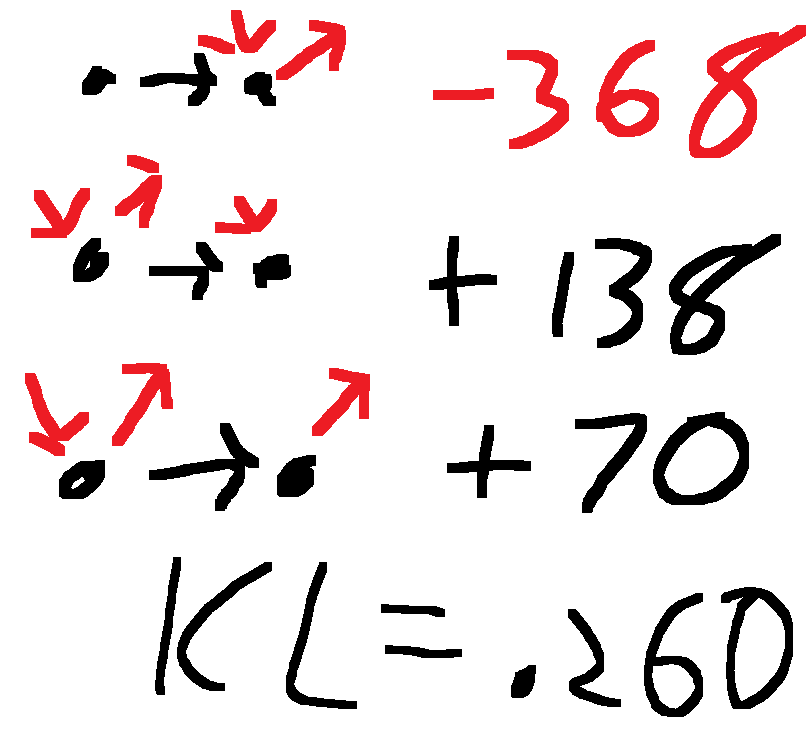 -368
+138
+70
KL=.260